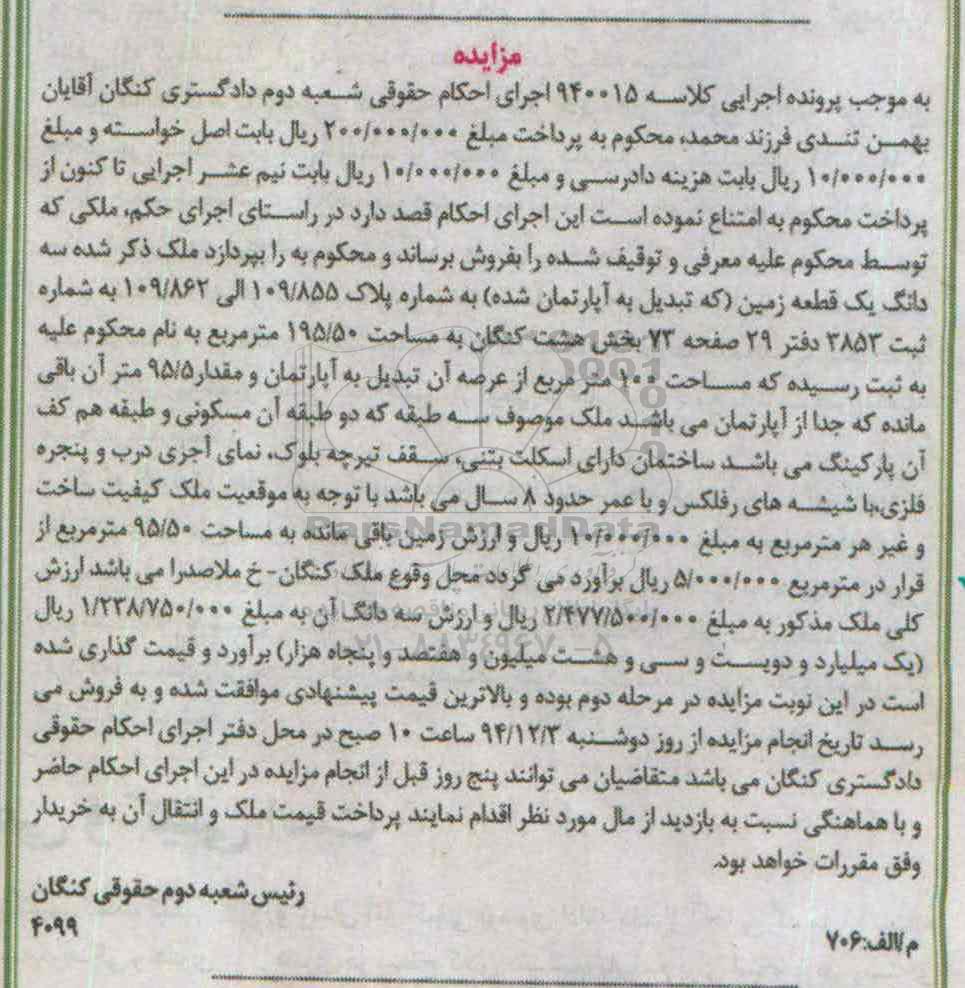 مزایده
به موجب پرونده اجرایی کلاسه ۹۴۰۰۱۵ اجرای احکام حقوقی شعبه دوم دادگستری کنگان آقایان
بهمن تنیدی فرزند محمد، محکوم به پرداخت مبلغ ۲۰۰/۰۰۰/۰۰۰ ریال بابت اصل خواسته و مبلغ
۱۰/۰۰۰/۰۰۰ ریال بابت هزینه دادرسی و مبلغ ۱۰/۰۰۰/۰۰۰ ریال بابت نیم عشر اجرایی تا کنون از
پرداخت محکوم به امتناع نموده است این اجرای احکام قصد دارد در راستای اجرای حکم، ملکی که
توسط محکوم علیه معرفی و توقیف شده را بفروش برساند و محکوم به را بپردازد ملک ذکر شده سه
دانگ یک قطعه زمین (که تبدیل به آپارتمان شده) به شماره پلاک ۱۰۹/۸۵۵ الی ۱۰۹/۸۶۲ به شماره
ثبت ۳۸۵۳ دفتر ۲۹ صفحه ۷۳ بخش هشت کنگان به مساحت ۱۹۵/۵۰ مترمربع به نام محکوم علیه
به ثبت رسیده که مساحت ۱۰۰ متر مربع از عرصه آن تبدیل به آپارتمان و مقدار۹۵/۵ متر آن باقی
مانده که جدا از آپارتمان می باشد ملک موصوف سه طبقه که دو طبقه آن مسکونی و طبقه هم کف
آن پارکینگ می باشد ساختمان دارای اسکلت بتنی، سقف تیرچه بلوک، نمای آجری درب و پنجره
فلزی،با شیشه های رفلکس و با عمر حدود ۸ سال می باشد با توجه به موقعیت ملک کیفیت ساخت
و غیر هر مترمربع به مبلغ ۱۰/۰۰۰/۰۰۰ ریال و ارزش زمین باقی مانده به مساحت ۹۵/۵۰ مترمربع از
قرار در مترمربع ۵/۰۰۰/۰۰۰ ریال برآورد می گردد محل وقوع ملک کنگان- خ ملاصدرا می باشد ارزش
کلی ملک مذکور به مبلغ ۲/۴۷۷/۵۰۰/۰۰۰ ریال و ارزش سه دانگ آن به مبلغ ۱/۲۳۸/۷۵۰/۰۰۰ ریال
(یک میلیارد و دویست و سی و هشت میلیون و هفتصد و پنجاه هزار) برآورد و قیمت گذاری شده
است در این نوبت مزایده در مرحله دوم بوده و بالاترین قیمت پیشنهادی موافقت شده و به فروش می
رسد تاریخ انجام مزایده از روز دوشنبه ۹۴/۱۲/۳ ساعت ۱۰ صبح در محل دفتر اجرای احکام حقوقی
دادگستری کنگان می باشد متقاضیان می توانند پنج روز قبل از انجام مزایده در این اجرای احکام حاضر
و با هماهنگی نسبت به بازدید از مال مورد نظر اقدام نمایند پرداخت قیمت ملک و انتقال آن به خریدار
وفق مقررات خواهد بود.
رئیس شعبه دوم حقوقی کنگان
۴۰۹۹
م/الف:۷۰۶
ParsNamadData